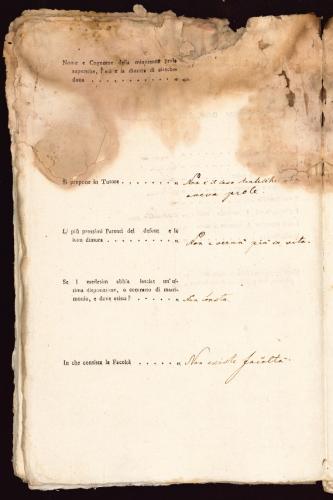 Nome e Cognome della minorenne prole
superstite, l'età e la dimora di ciascheduna . . . . . . . . . .
Si propone in Tutore . . . . . . „ Non è il caso
aveva prole.
Li più prossimi Parenti del defunto e la
loro dimora . . . . . . . . . „ Non è verun più in vita.
Se i medesimi abbia lasciato un'ultima
disposizione, o contratto di matrimonio,
e dove esista? . . . . . . „ Non consta.
In che consista la Facoltà . . . . . . „ Non esiste facoltà.